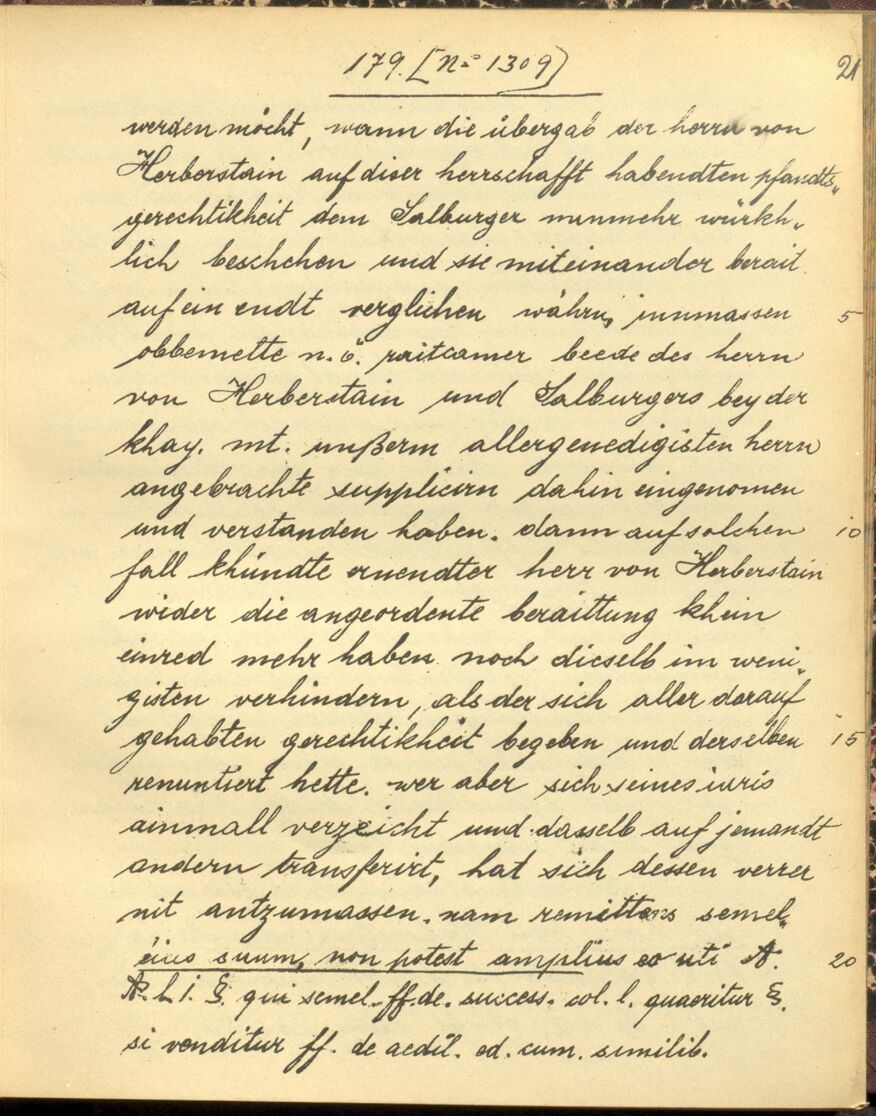 179. [No 1309) 21
werden möcht, wann die übergab der herrn von
Herberstain auf diser herrschafft habendten pfandts„
gerechtikheit dem Salburger nunmehr würkh„
lich beschehen und sie miteinander berait
auf ein endt verglichen währn, inmassen 5
obbemelte n. ö. raitcamer beede des herrn
von Herberstain und Salburgers bey der
khay. mt. unßerm allergenedigisten herrn
angebrachte supplicirn dahin eingenomen
und verstanden haben. dann auf solchen 10
fall khündte ernendter herr von Herberstain
wider die angeordente beraittung khein
einred mehr haben noch dieselb im weni„
gisten verhindern, als der sich aller darauf
gehabten gerechtikheit begeben und derselben 15
renuntiert hette. wer aber sich seines iuris
ainmall verzeicht und dasselb auf jemandt
andern transferirt, hat sich dessen verrer
nit antzumassen. nam remittens semel
eius suum, non potest amplius eo uti A. 20
A. L i. §. qui semel ff. de. success. col. l. quaeritur §.
si venditur ff. de aedil. ed. cum. similib.